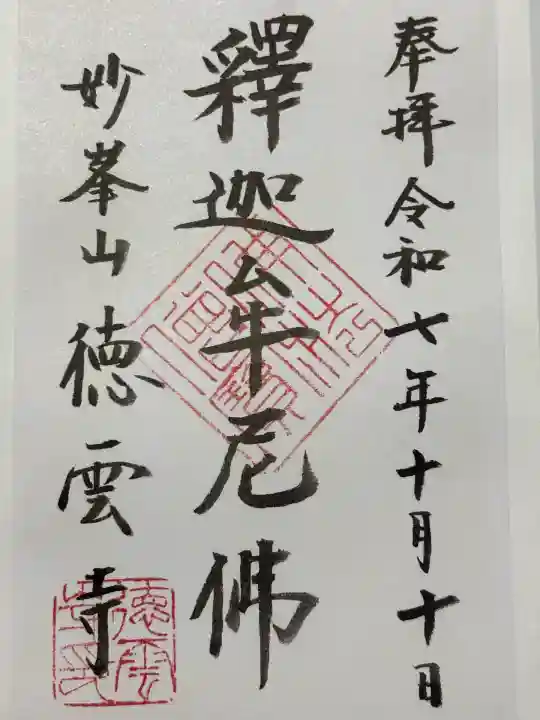 奉拝 令和七年十月十日
釋迦牟尼佛
妙峯山 徳雲寺
徳雲寺印